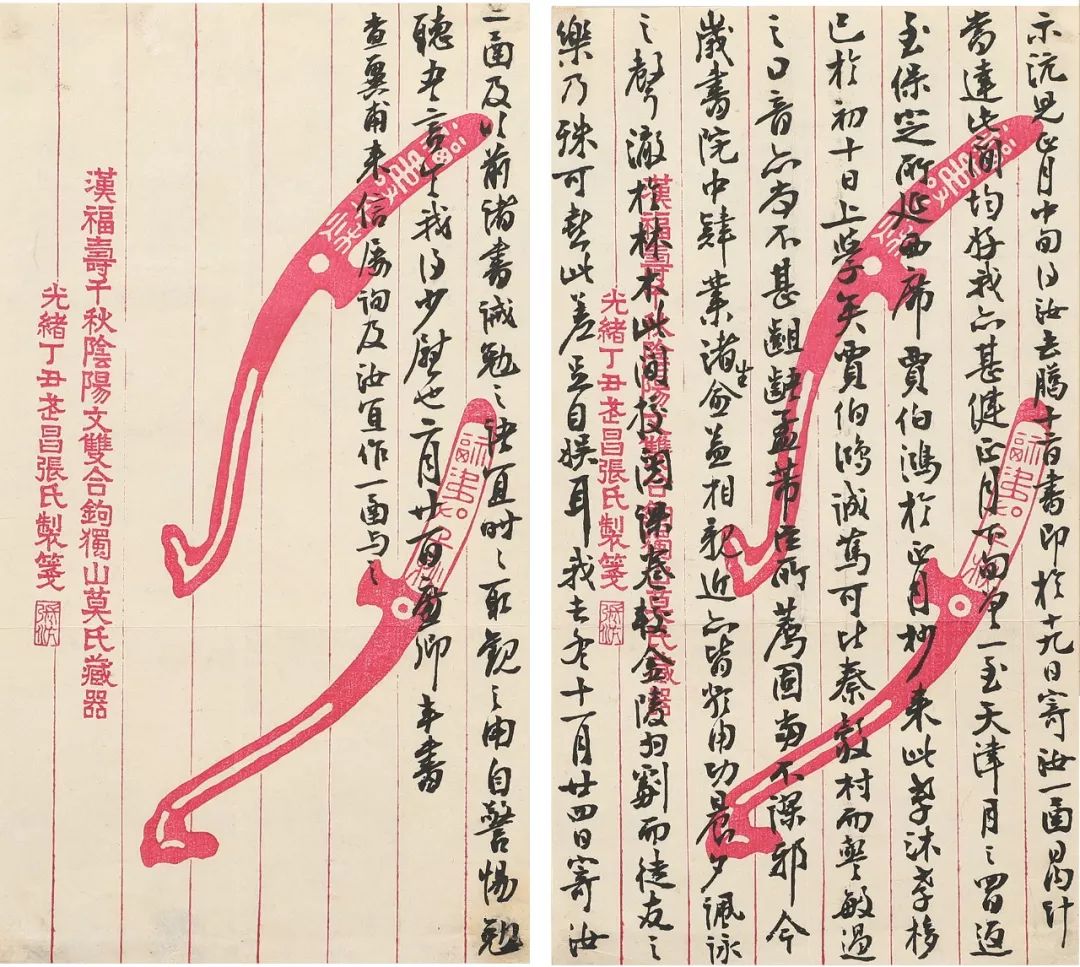 示沆兒正月中旬得汝去臘十日書即於十九日寄汝一函計
當達此間均好我亦甚健正月下旬曾一至天津月之四日返
至保定所延西席賈伯鴻於正月杪來此孝沐孝移
已於初十日上學矣賈伯鴻誠篤可比秦穀村而學敏過
之口音亦尚不甚齟齬孟臣所薦固當不謬邪今
歲書院中肄業諸生僉益相親近亦皆能用功晨夕諷詠
之聲澈於林木此間校閱課卷較金陵為劇而徒友之
樂乃殊可喜此差足自娛耳我去冬十一月廿四日寄汝
漢福壽千秋陰陽文雙合鉤獨山莫氏藏器
光緒丁丑武昌張氏製箋
一函及以前諸書誡勉之語宜時之取觀之用自警惕勉
聽吾言令我得少慰也二月廿日廉卿手書
查翼甫來信屬詢及汝宜作一函與之
漢福壽千秋陰陽文雙合鉤獨山莫氏藏器
光緒丁丑武昌張氏製箋
張沆